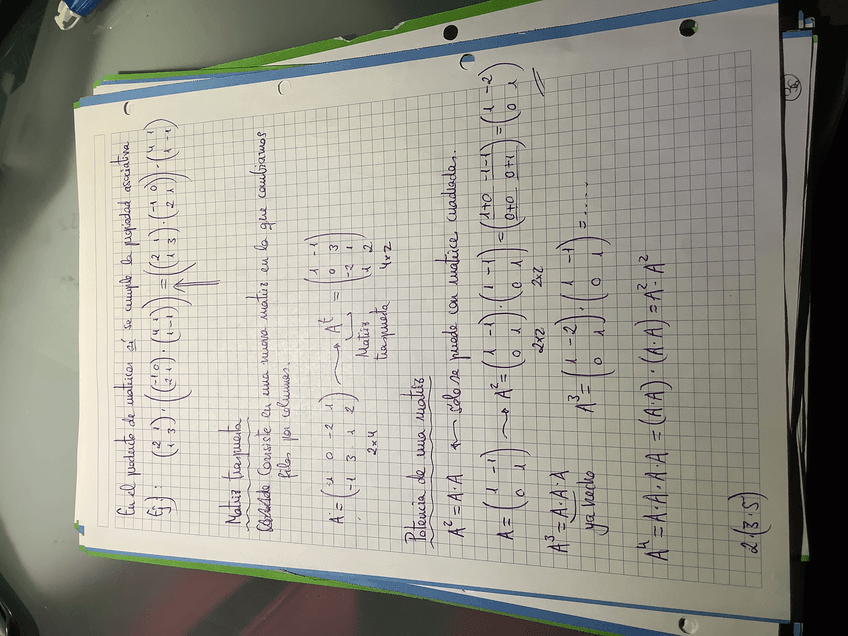 En el producto de matrices sí se cumple la propiedad asociativa
Ej: (2 1 / 1 3) · ((-1 0 / 2 1) · (4 1 / 1 -1)) = ((2 1 / 1 3) · (-1 0 / 2 1)) · (4 1 / 1 -1)
Matriz traspuesta
Consiste en una nueva matriz en la que cambiamos
filas por columnas.
A = (1 0 -2 1 / -1 3 1 2) → Aᵗ = (1 -1 / 0 3 / -2 1 / 1 2)
2x4 Matriz traspuesta 4x2
Potencia de una matriz
A² = A·A ← Solo se puede con matrice cuadradas.
A = (1 -1 / 0 1) → A² = (1 -1 / 0 1) · (1 -1 / 0 1) = (1+0 -1-1 / 0+0 0+1) = (1 -2 / 0 1)
2x2 2x2
A³ = A·A·A A³ = (1 -2 / 0 1) · (1 -1 / 0 1) = .....
ya hecho
A⁴ = A·A·A·A = (A·A)·(A·A) = A²·A²
2·(3·5)